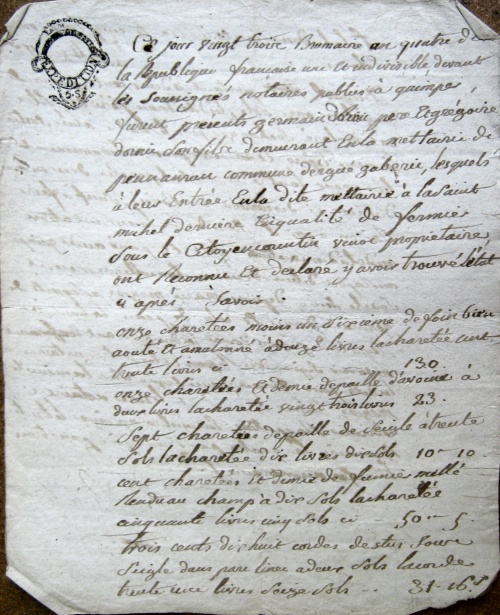 EXPEDITION
5. S.
Ce jour vingt trois Brumaire an quatre de
la republique francaise une et indivisible devant
les soussignés notaires publics a quimper,
furent présents germain dornic pere et grégoire
dornic son fils demeurant En la mettairie de
pennanrun commune dergué gaberic, lesquels
à leur Entrée En la dite mettairie à la saint
michel derniere En qualité de fermier
sous le Citoyen corentin propriétaire
ont Reconnu Et declaré y avoir trouvé l'état
ci apres Savoir :
onze charetées moins un sixieme de foin bien
aouté Et amulonné a douze livres la charetée cent
trente livres ci 130
onze charetées Et demie de paille d'avoine à
deux livres la charetée vingt trois livres 23.
Sept charetées de paille de seigle a trente
sols la charetée dix livres dix sols 10 - 10
cent charetées Et demie de fumier mellé
Rendu au champ a dix sols la charetée
cinquante livres cinq sols ci 50 - 5.
trois cents dix huit cordes de stus sous
seigle dans parc a deux sols la corde
trente une livres seize sols 31 - 16.s